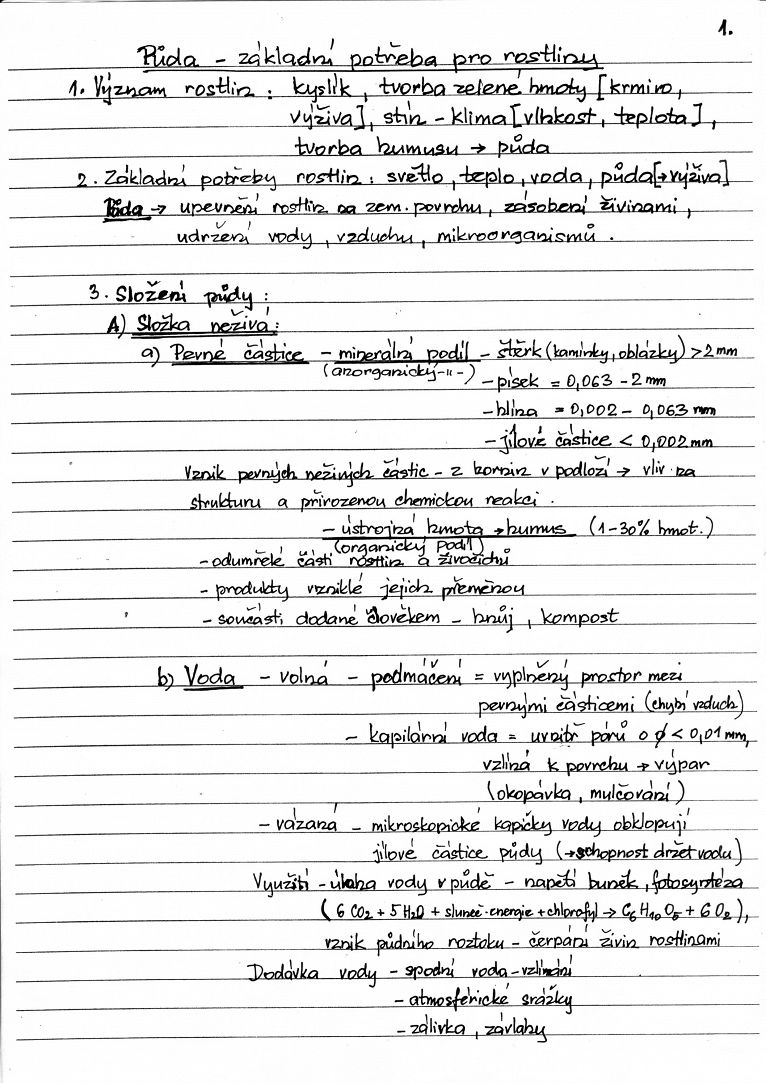 1.
Půda - základní potřeba pro rostliny
1. Význam rostlin : kyslík, tvorba zelené hmoty [krmivo,
výživa], stín - klima [vlhkost, teplota],
tvorba humusu → půda
2. Základní potřeby rostlin : světlo, teplo, voda, půda[→výživa]
Půda → upevnění rostlin na zem. povrchu, zásobení živinami,
udržení vody, vzduchu, mikroorganismů.
3. Složení půdy :
A) Složka neživá:
a) Pevné částice - minerální podíl - štěrk (kamínky, oblázky) >2mm
(anorganický -"-) - písek = 0,063 - 2 mm
- hlína = 0,002 - 0,063 mm
- jílové částice < 0,002 mm
Vznik pevných neživých částic - z hornin v podloží → vliv na
strukturu a přirozenou chemickou reakci.
- ústrojná hmota → humus (1-30% hmot.)
(organický podíl)
- odumřelé části rostlin a živočichů
- produkty vzniklé jejich přeměnou
- součásti dodané člověkem - hnůj, kompost
b) Voda - volná - podmáčení = vyplněný prostor mezi
pevnými částicemi (chybí vzduch)
- kapilární voda = uvnitř párů o ø < 0,01 mm,
vzlíná k povrchu → výpar
(okopávka, mulčování)
- vázaná - mikroskopické kapičky vody obklopují
jílové částice půdy (→schopnost držet vodu)
Využití - úloha vody v půdě - napětí buněk, fotosyntéza
(6 CO2 + 5 H2O + sluneč. energie + chlorofyl → C6 H10 O5 + 6 O2),
vznik půdního roztoku - čerpání živin rostlinami
Dodávka vody - spodní voda - vzlínání
- atmosférické srážky
- zálivka, závlahy